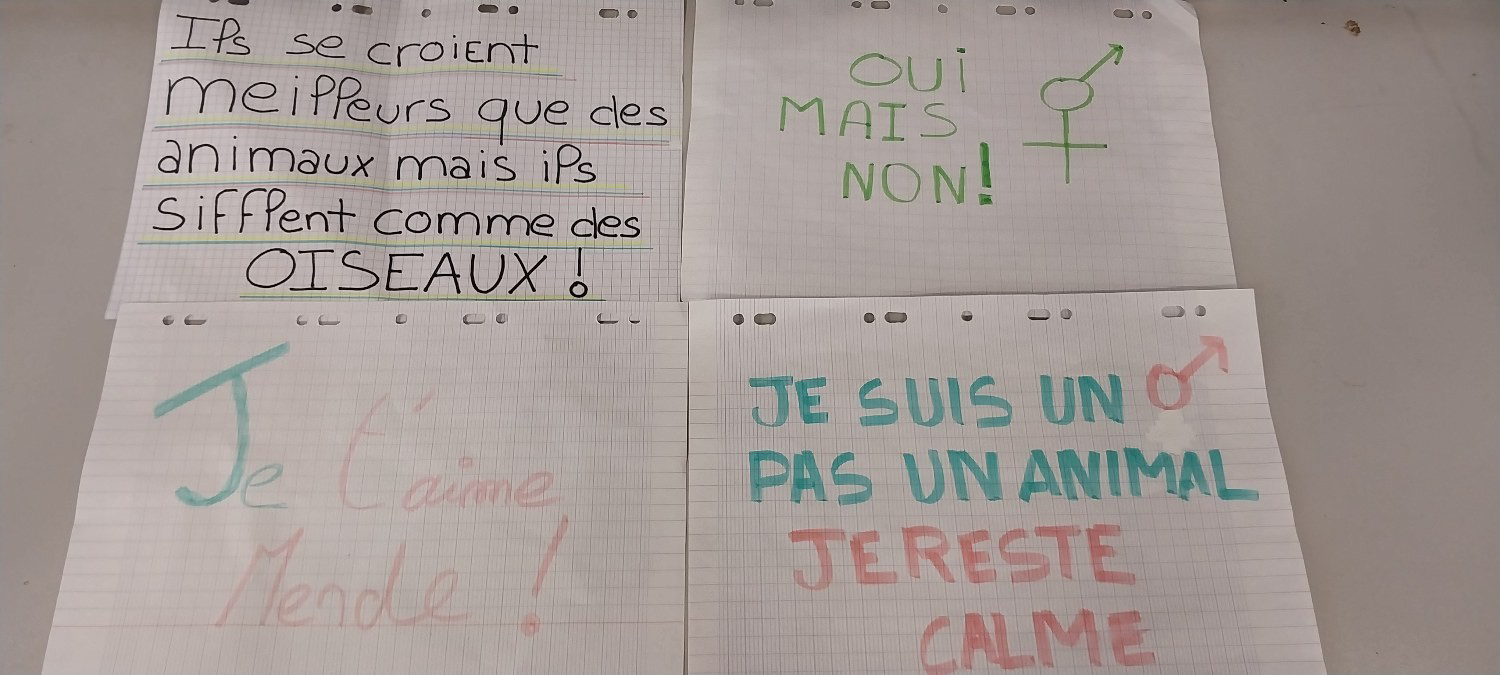 Ils se croient
meilleurs que des
animaux mais ils
sifflent comme des
OISEAUX !
OUi
MAIS
NON!
Je t'aime
Mende !
JE SUIS UN
PAS UN ANIMAL
JE RESTE
CALME